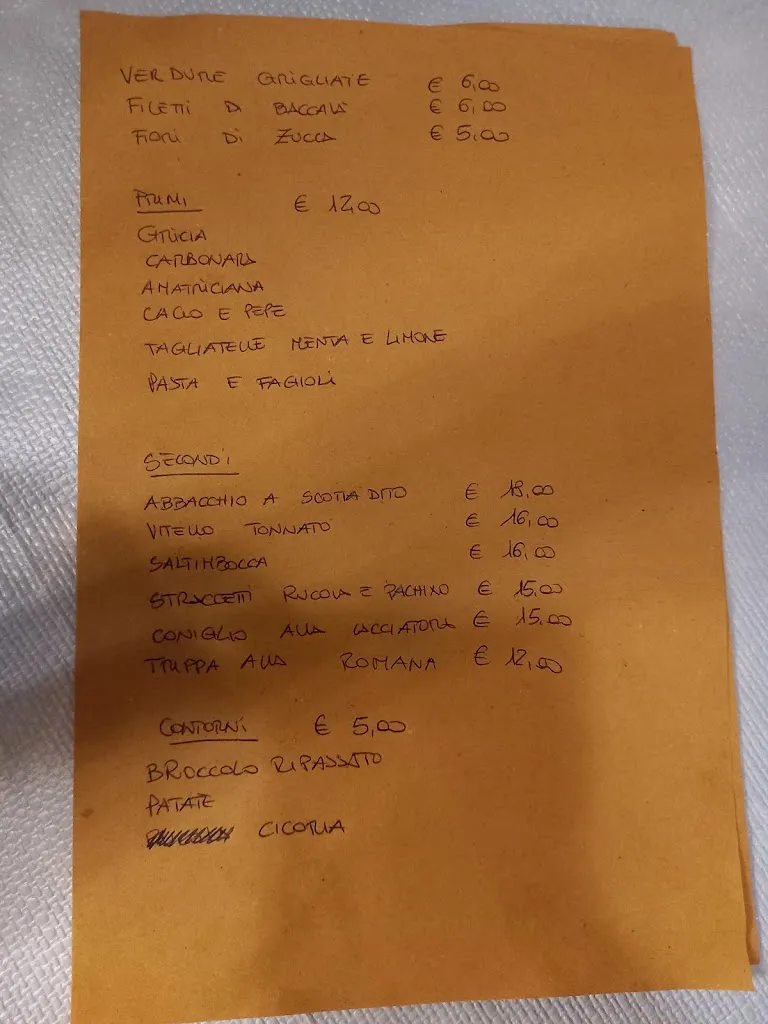 VERDURE GRIGLIATE € 6,00
FILETTI DI BACCALÀ € 6,00
FIORI DI ZUCCA € 5,00
PRIMI € 12,00
GRICIA
CARBONARA
AMATRICIANA
CACIO E PEPE
TAGLIATELLE MENTA E LIMONE
PASTA E FAGIOLI
SECONDI
ABBACCHIO A SCOTTA DITO € 18,00
VITELLO TONNATO € 16,00
SALTIMBOCCA € 16,00
STRACCETTI RUCOLA E PACHINO € 15,00
CONIGLIO ALLA CACCIATORA € 15,00
TRIPPA ALLA ROMANA € 12,00
CONTORNI € 5,00
BROCCOLO RIPASSATO
PATATE
CICORIA